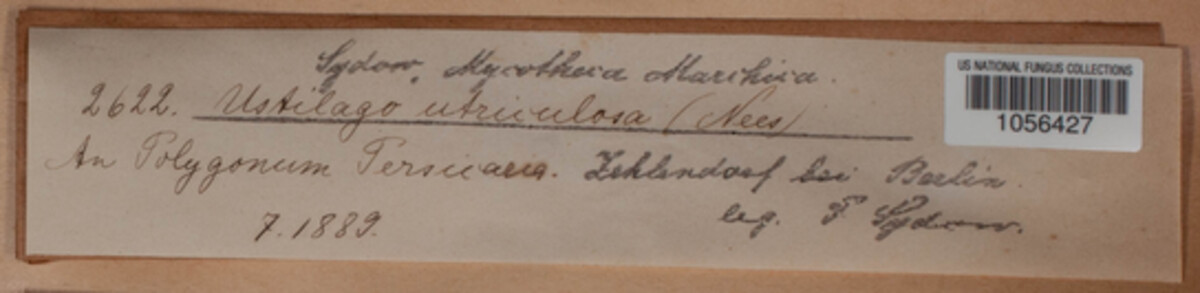 Sydow, Mycotheca Marchica.
2622. Ustilago utriculosa (Nees)
An Polygonum Persicaria. Zehlendorf bei Berlin.
7. 1889.
leg. P Sydow.
US NATIONAL FUNGUS COLLECTIONS
1056427